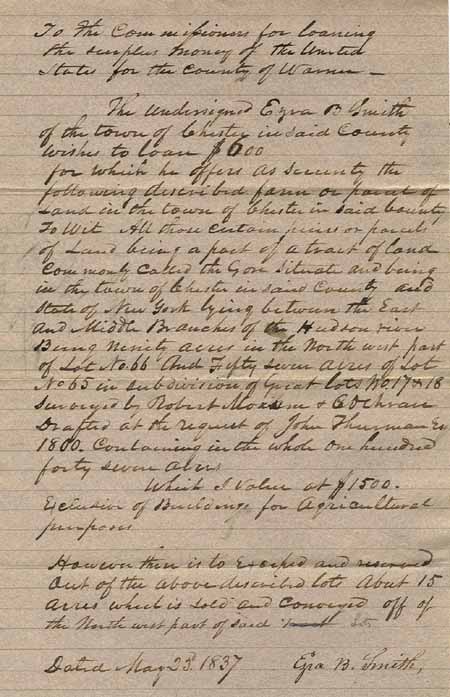 To the Commissioners for loaning
the surplus money of the United
States for the County of Warren —
The Undersigned Ezra B Smith
of the town of Chester in said County
wishes to loan $600
for which he offers as security the
following described farm or parcel of
Land in the town of Chester in said County
To Wit All those certain pieces or parcels
of Land being a part of a tract of land
Commonly Called the Gore Situate and being
in the town of Chester in said County and
State of New York lying between the East
and Middle Branches of the Hudson river
Being Ninety acres in the North west part
of Lot No. 66 And Fifty Seven Acres of Lot
No 65 in subdivision of Great lots No. 17 & 18
Surveyed by Robert & Cochran
Drafted at the request of John Thurman
1800. Containing in the whole one hundred
forty seven Acres
Which I Value at $1500.
Exclusive of Buildings for Agricultural
purposes
However there is to Excepted and reserved
Out of the above described lots About 15
Acres which is sold and Conveyed off of
the North west part of said
Dated May 23d. 1837 Ezra B. Smith,